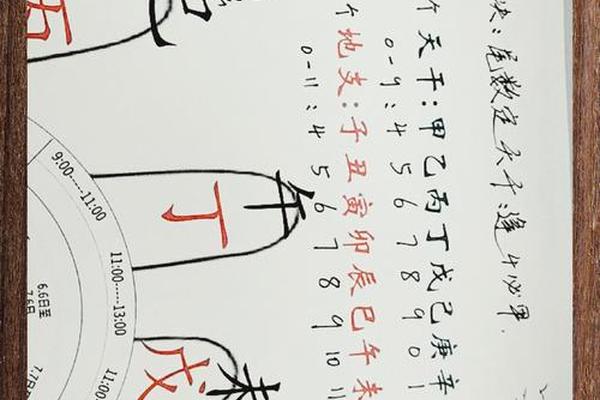 诀：尾数定天干：逢4必甲.
个 天干：甲乙丙丁戊己庚辛
0-9：4 5 6 7 8 9 0 1
个 地支：子丑寅卯辰巳午未
0-11：4 5 6 7 8 9 10 11
午
丁
未
戊
9:00-----11:00
11:00-----13:00
11:00
6.6日至
7.6日
7.7日